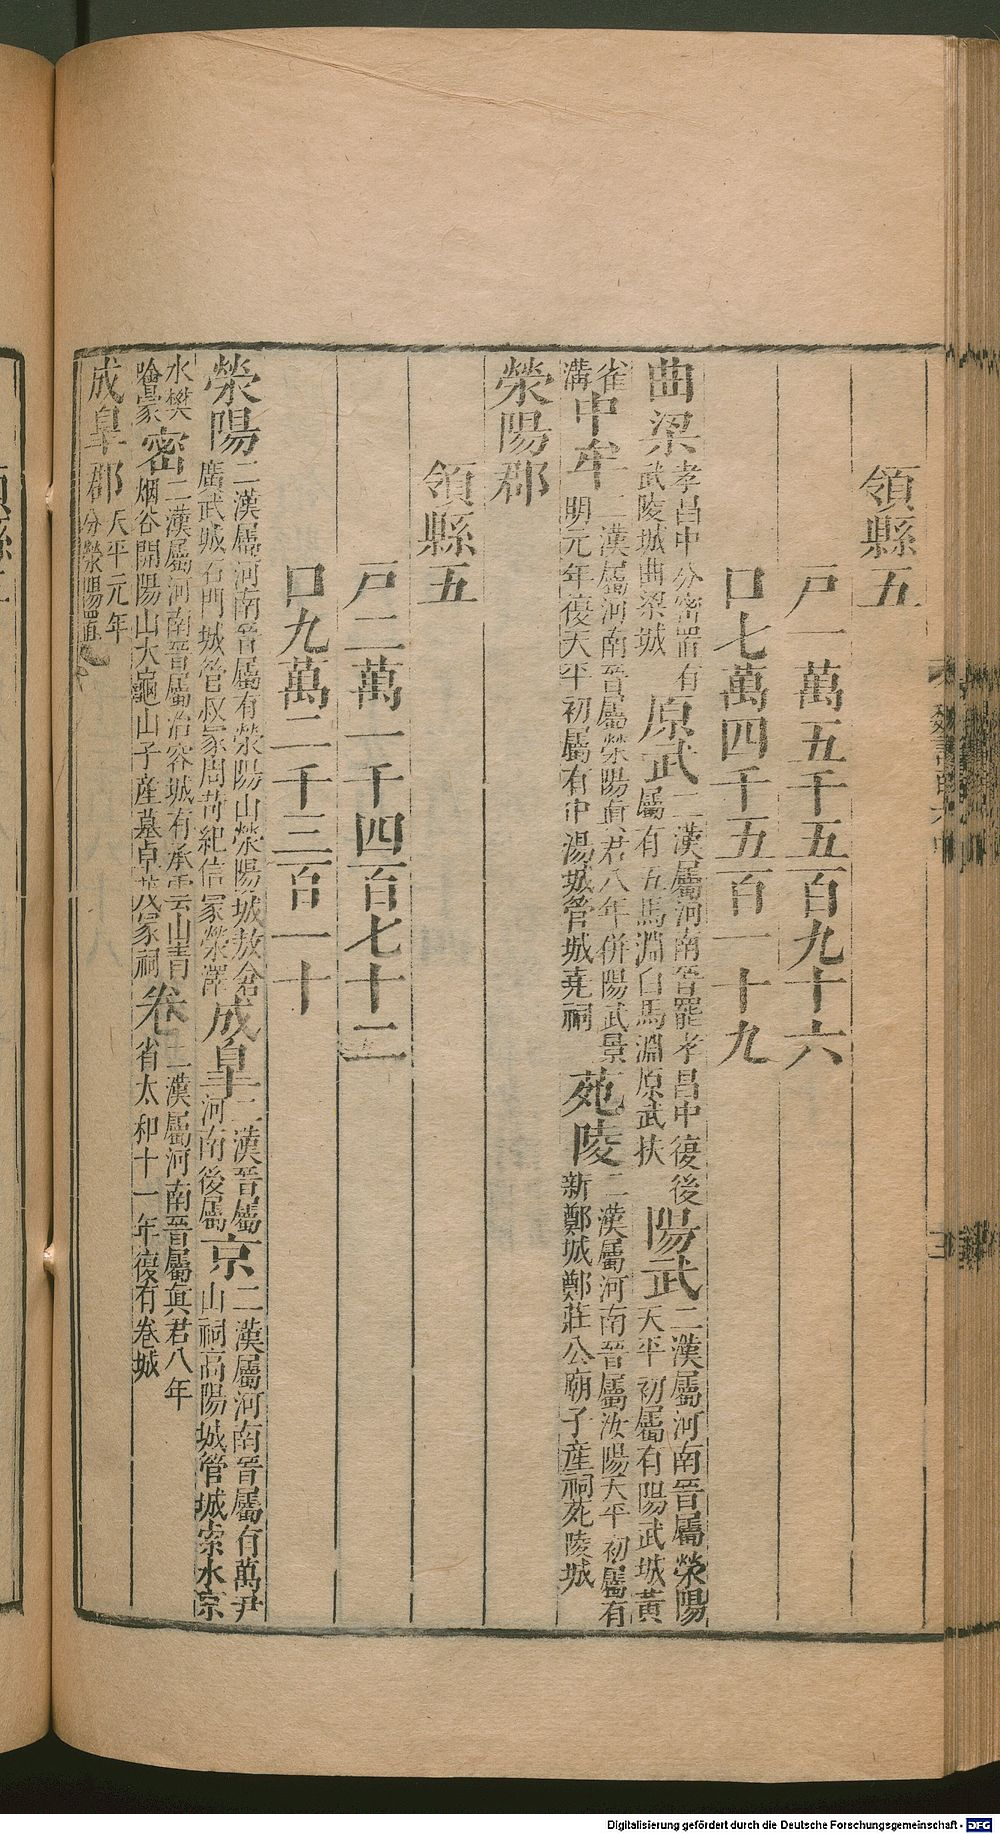 領縣五
戸一萬五千五百九十六
口七萬四千五百一十九
曲梁孝昌中分密置有武陵城曲梁城原武二漢屬河南晉罷孝昌中復後屬有五馬淵白馬淵原武扶陽武二漢屬河南晉屬滎陽天平初屬有陽武城黃
雀溝中牟二漢屬河南晉屬滎陽眞君八年併陽武景明元年復天平初屬有中湯城管城堯祠苑陵二漢屬河南晉屬汝陽天平初屬有新鄭城鄭莊公廟子產祠苑陵城
滎陽郡
領縣五
戸二萬一千四百七十二
口九萬二千三百一十
滎陽二漢屬河南晉屬有滎陽山滎陽城敖倉廣武城石門城管叔冢周苛紀信冢滎澤成皐二漢晉屬河南後屬京二漢屬河南晉屬有萬尹山祠高陽城管城索水京
水樊噲冢密二漢屬河南晉屬治容城有承雲山青烟谷開陽山大龜山子產墓卓茂冢祠卷二漢屬河南晉屬眞君八年省太和十一年復有卷城
成皐郡天平元年分滎陽置
領縣